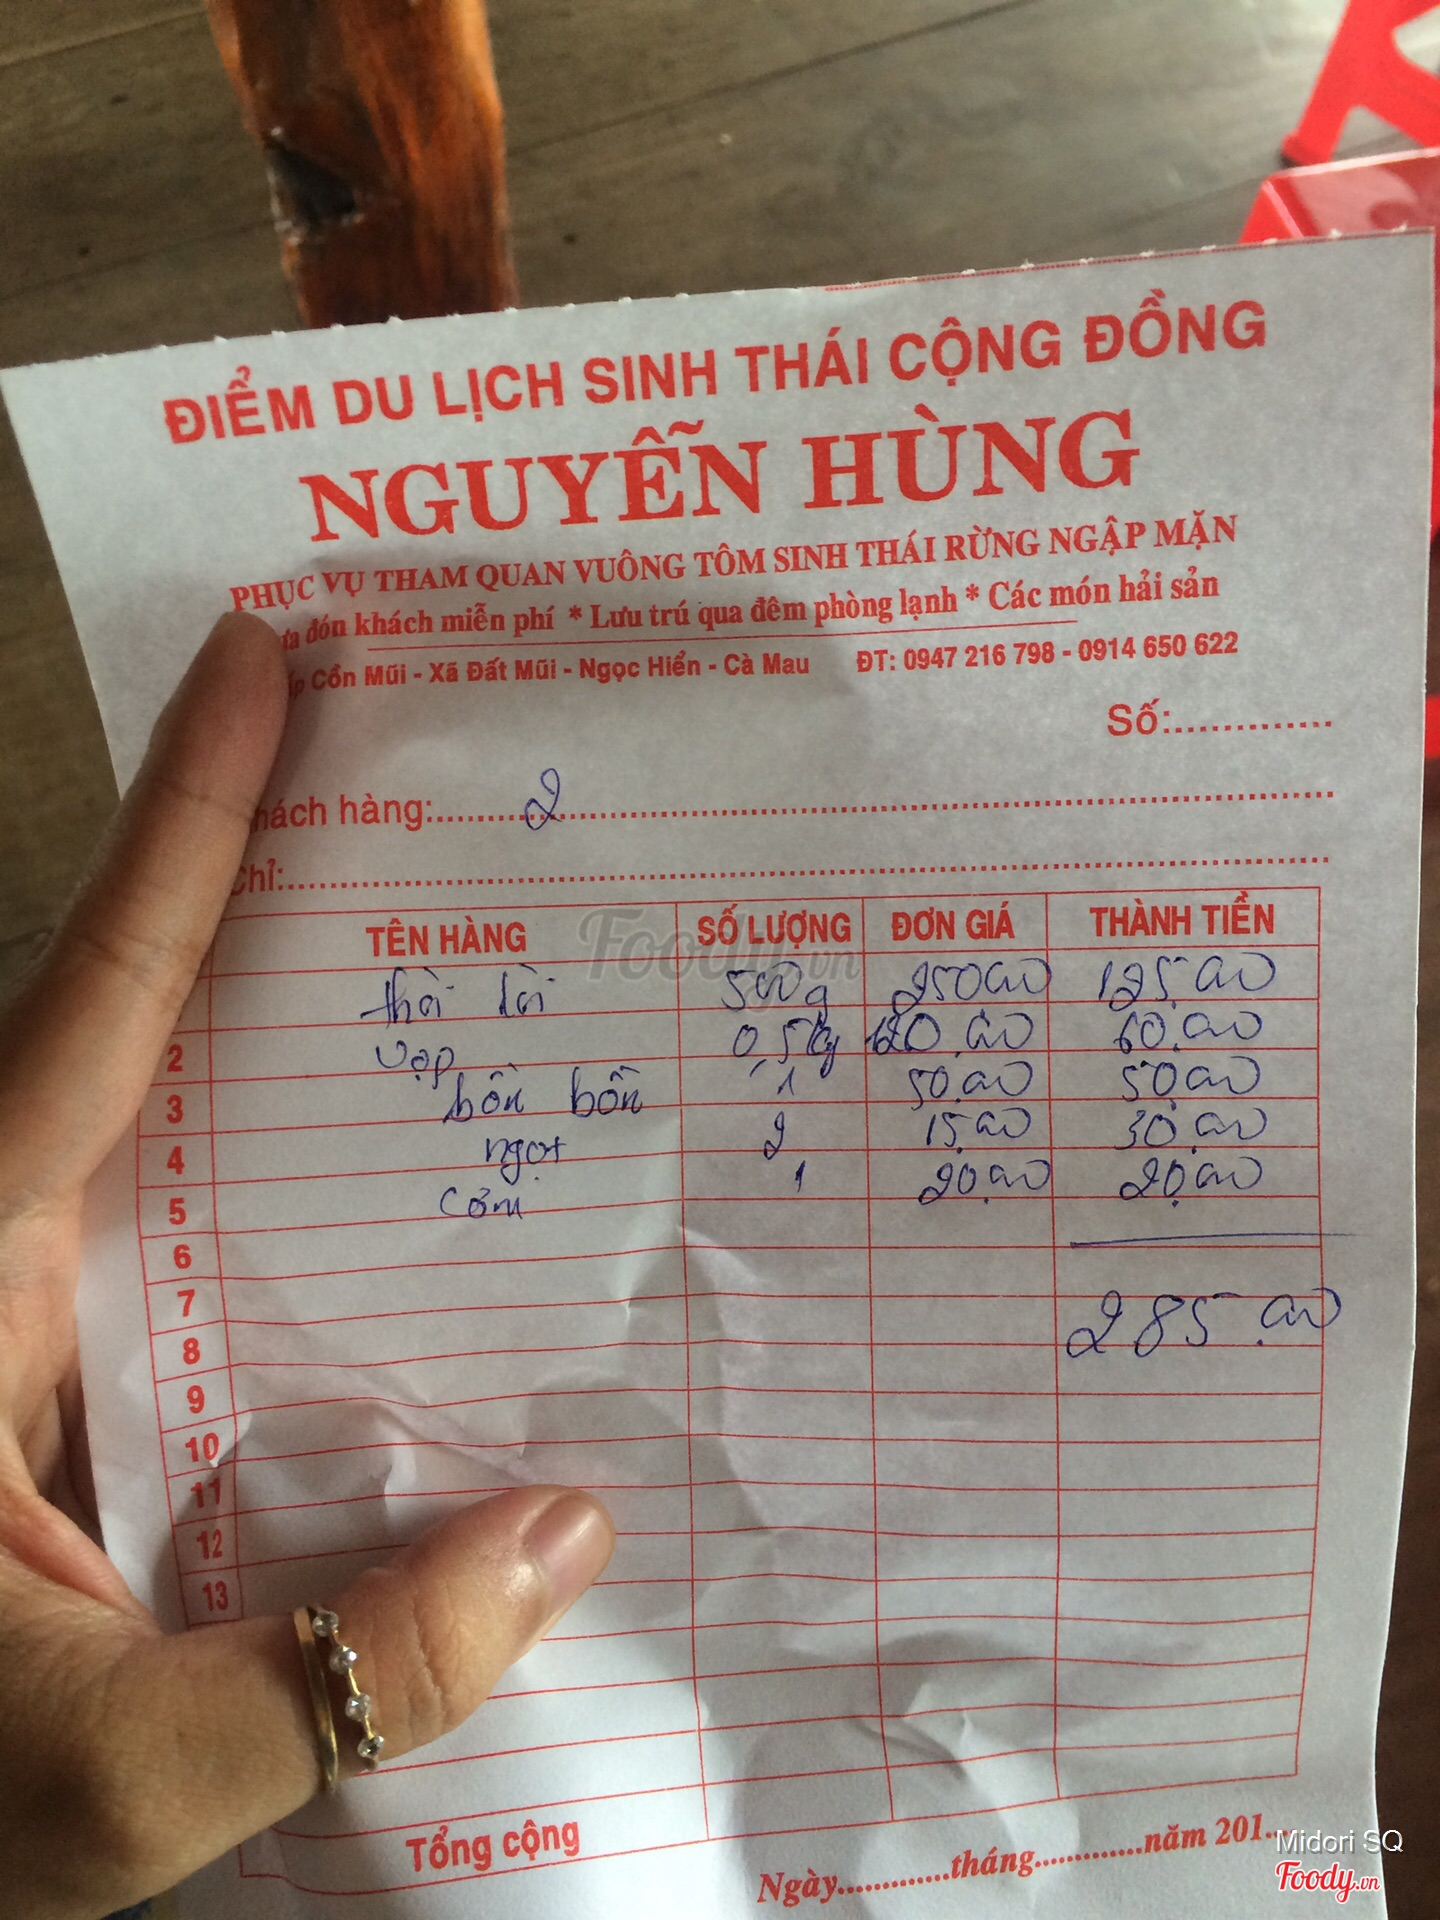 ĐIỂM DU LỊCH SINH THÁI CỘNG ĐỒNG
NGUYỄN HÙNG
PHỤC VỤ THAM QUAN VUÔNG TÔM SINH THÁI RỪNG NGẬP MẶN
đón khách miễn phí * Lưu trú qua đêm phòng lạnh * Các món hải sản
Cồn Mũi - Xã Đất Mũi - Ngọc Hiển - Cà Mau ĐT: 0947 216 798 - 0914 650 622
Số:..............
hách hàng:.......2.......
Chỉ:..............
TÊN HÀNG SỐ LƯỢNG ĐƠN GIÁ THÀNH TIỀN
thòi lòi 500g 250.000 125.000
2 vọp 0,5kg 120.000 60.000
3 bồn bồn 1 50.000 50.000
4 ngọt 2 15.000 30.000
5 cơm 1 20.000 20.000
6
7 285.000
8
9
10
11
12
13
Tổng cộng
Ngày.............tháng............năm 201...
Foody.vn
Midori SQ
Foody.vn